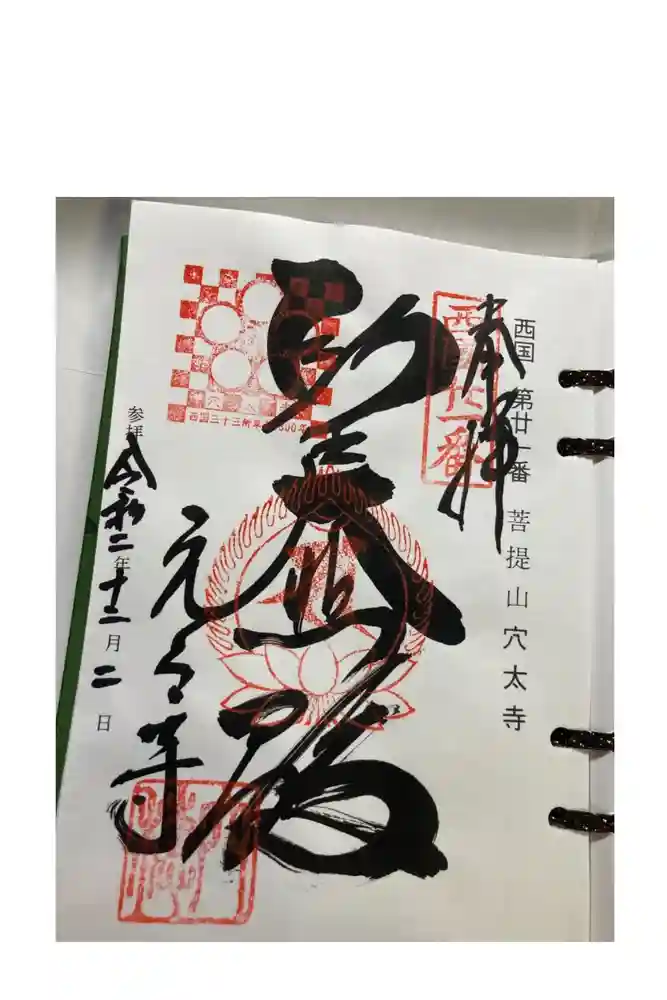 西国 第廿一番 菩提山穴太寺
奉拝
西國廿一番
聖大悲殿
西国三十三所草創1300年
穴太寺
参拝 令和二年十二月二日